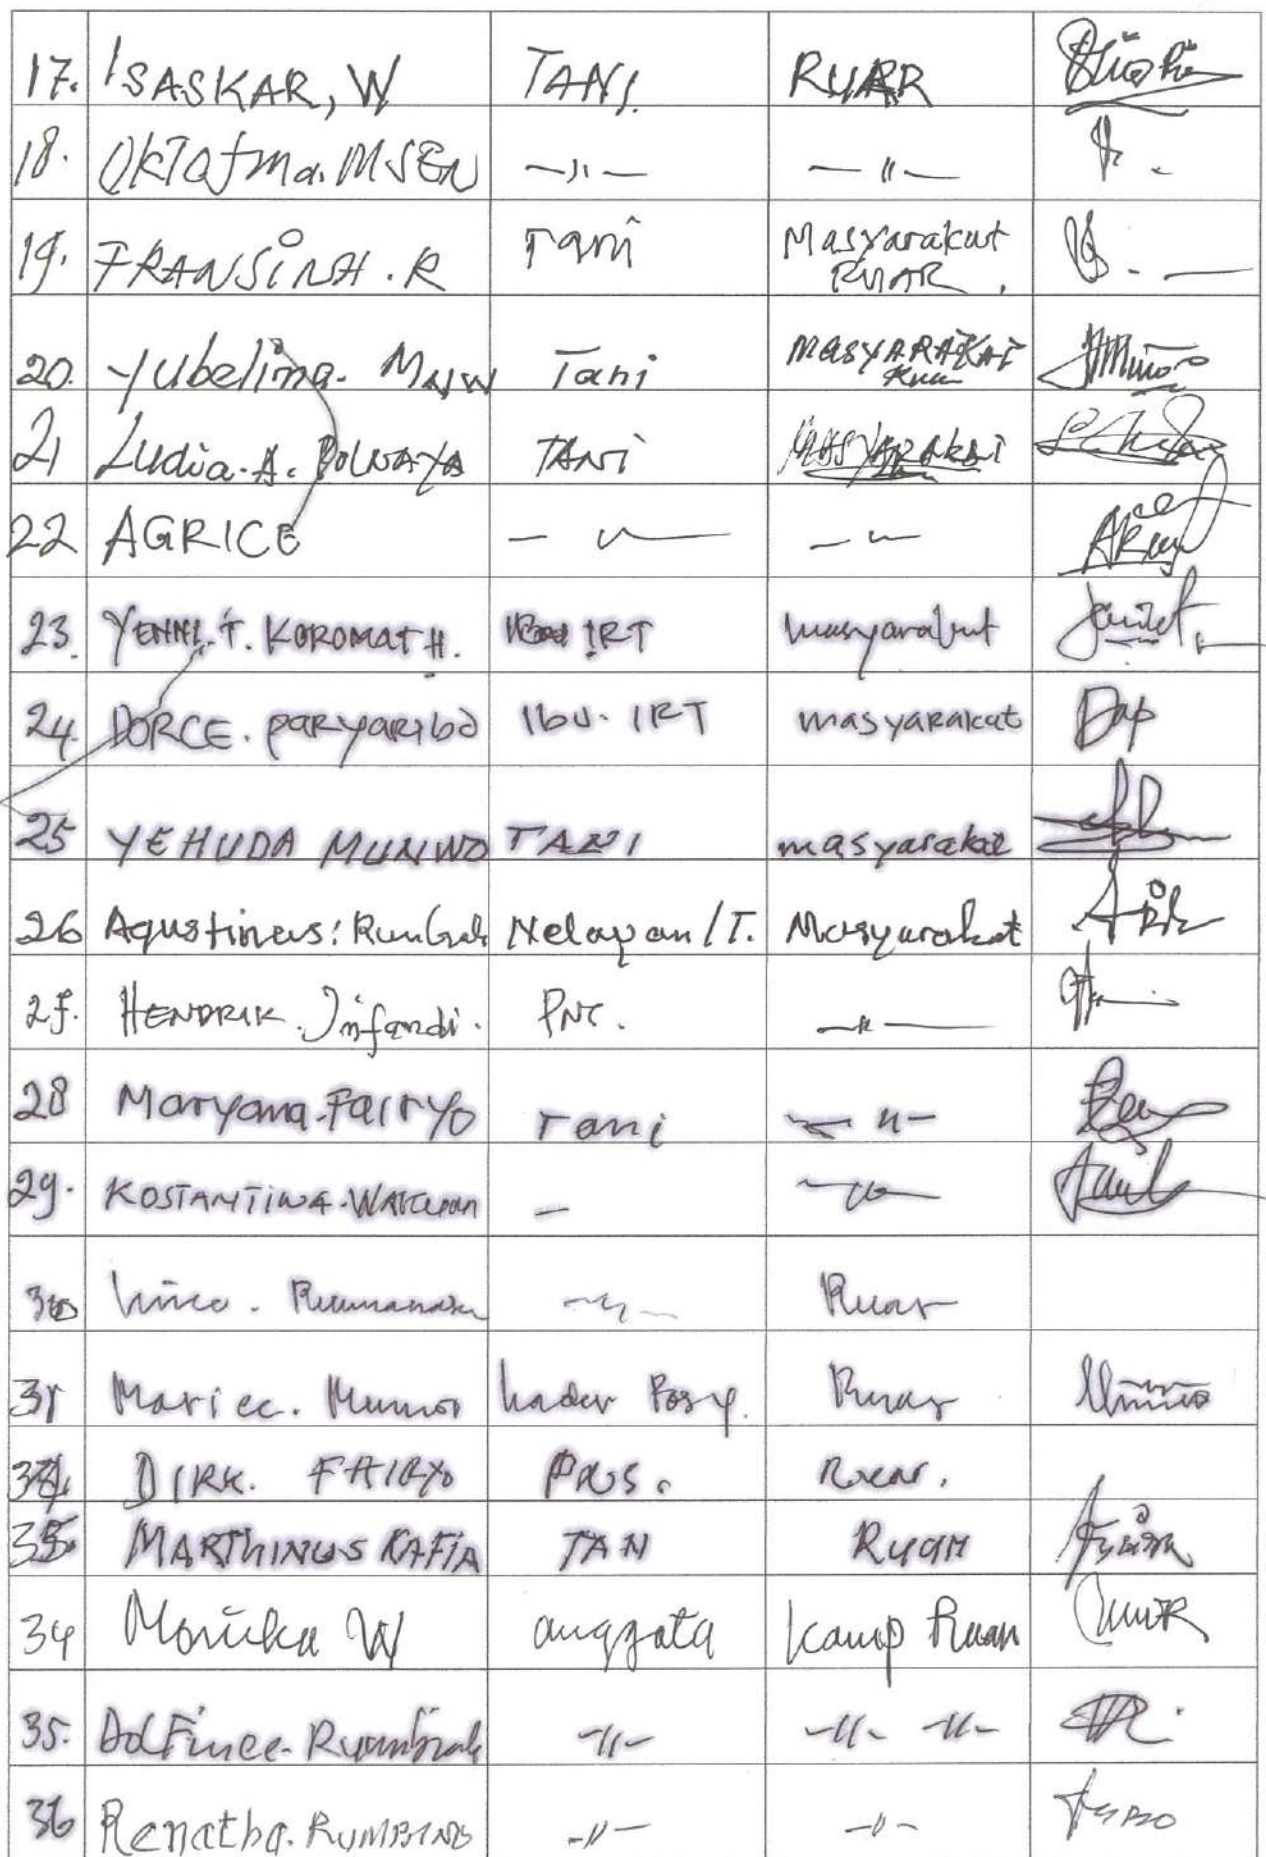 17. ISASKAR, W TANI. RUAR
18. OKTOFMA. MSEN —〃— —〃—
19. FRANSINA . R Tani Masyarakat
RUAR .
20. Yubelina. MNW Tani MASYARAKAT
21 Ludia. A. TANI MASYARAKAT
22 AGRICE — 〃 — — 〃
23. YENNI. T. KOROMATH. IRT masyarakat
24. DORCE. paryaribo Ibu. IRT masyarakat
25 YEHUDA MUNWO TANI masyarakat
26 Agustinus: Rumbrak Nelayan/T. Masyarakat
27. HENDRIK. Infandi. PNS. —〃—
28 Maryana. Fairyo Tani — 〃 —
29. KOSTANTINA. — —〃—
30 —〃— Ruar
31 Mariec. kader Posy. Ruar
32. DIRK. FAIRYO PNS. Ruar.
33. MARTHINUS KAFIA TAN RUAR
34 Monika W anggota Kamp Ruar
35. Dolfince. Rumbrak —〃— —〃— —〃—
36 Renatha. RUMBINO —〃— —〃—